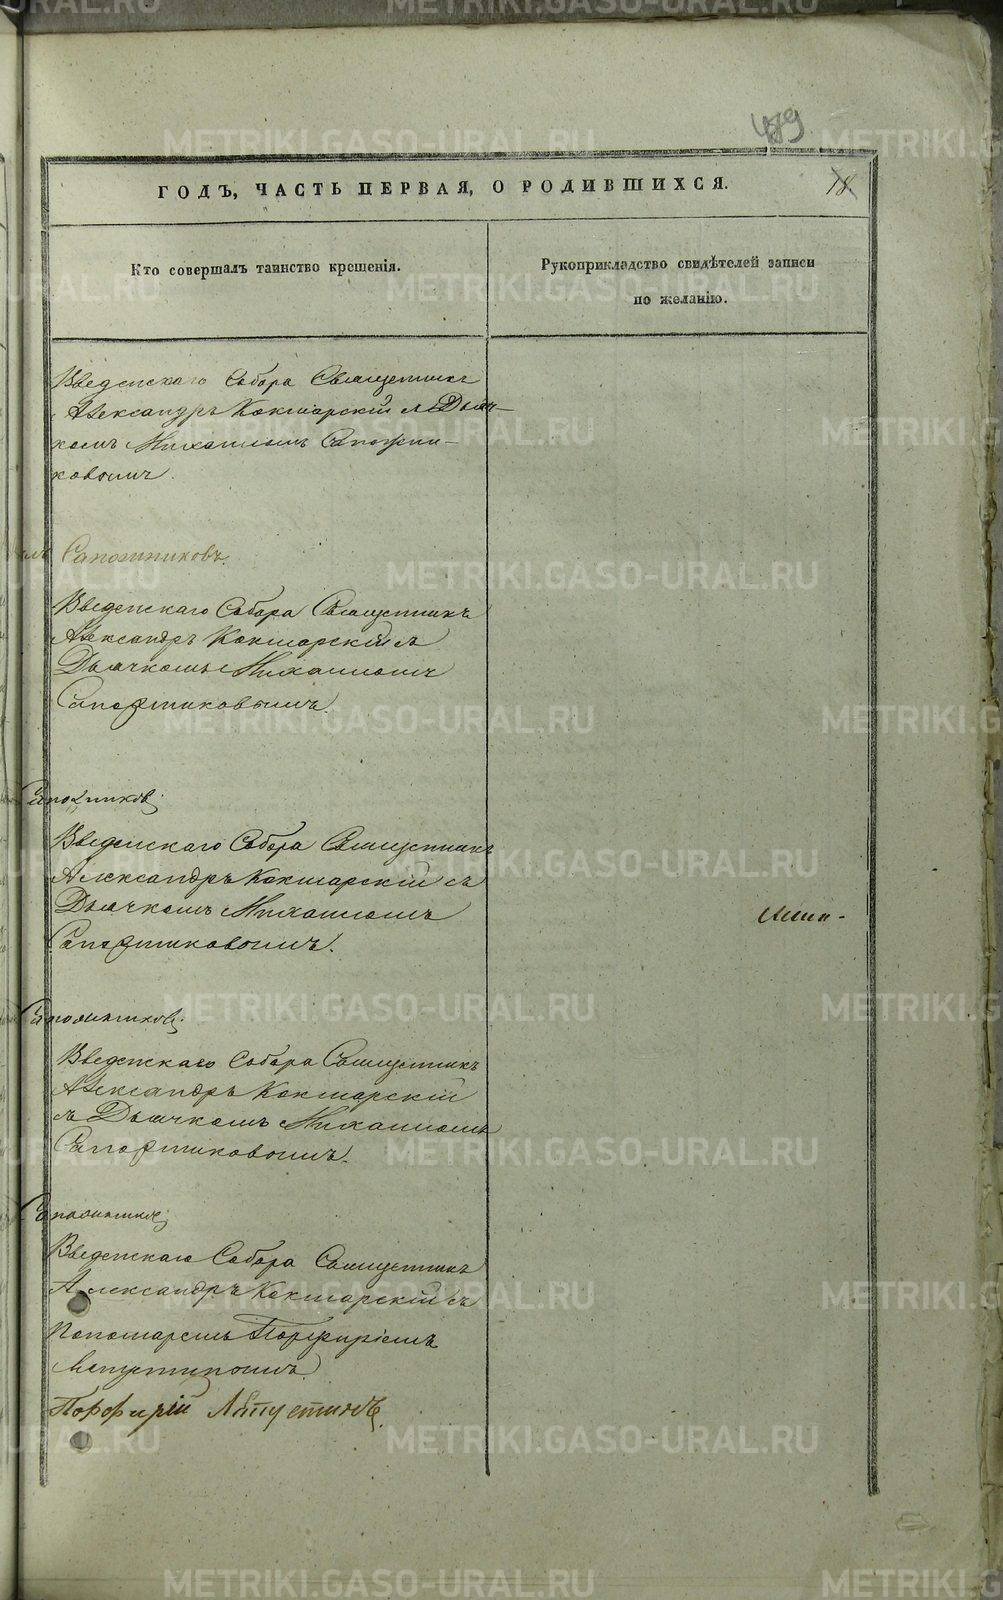 489
ГОДЪ, ЧАСТЬ ПЕРВАЯ, О РОДИВШИХСЯ.
18
Кто совершалъ таинство крещенія.
Рукоприкладство свидѣтелей записи
по желанію.
Введенскаго Собора Священникъ
Александръ Кокшарскій съ Дьяч-
комъ Михаиломъ Сапожни-
ковымъ.
Сапожниковъ.
Введенскаго Собора Священникъ
Александръ Кокшарскій съ
Дьячкомъ Михаиломъ
Сапожниковымъ.
Сапожников
Введенскаго Собора Священникъ
Александръ Кокшарскій съ
Дьячкомъ Михаиломъ
Сапожниковымъ.
Сапожников
Введенскаго Собора Священникъ
Александръ Кокшарскій
съ Дьячкомъ Михаиломъ
Сапожниковымъ.
Введенскаго Собора Священникъ
Александръ Кокшарскій съ
Пономаремъ Порфиріемъ
Порфирій
METRIKI.GASO-URAL.RU